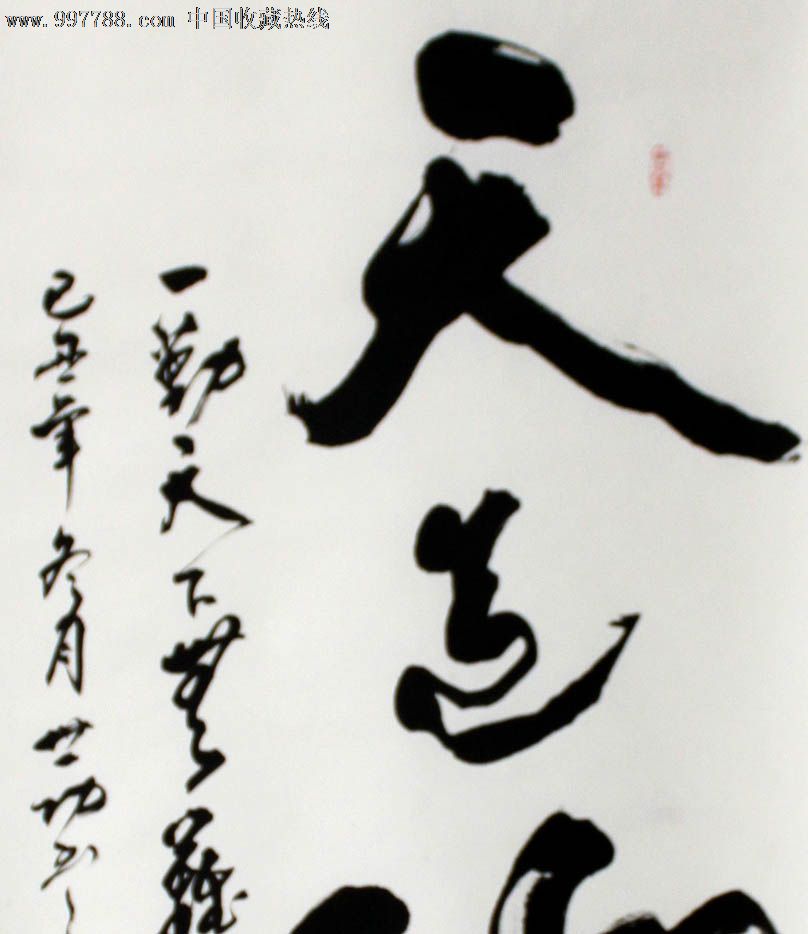 www.997788.com 中国收藏热线
天道
一勤天下無難
己丑年冬月世功书